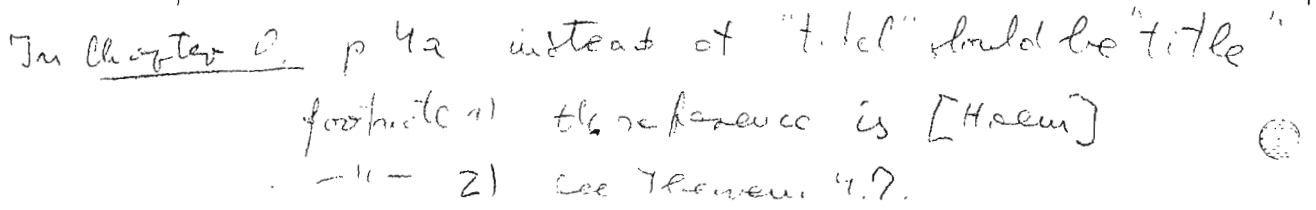 In Chapter 0. p 4a instead of "titel" should be "title"
footnote 1) the reference is [Haem]
—"— 2) see Theorem 4.7.